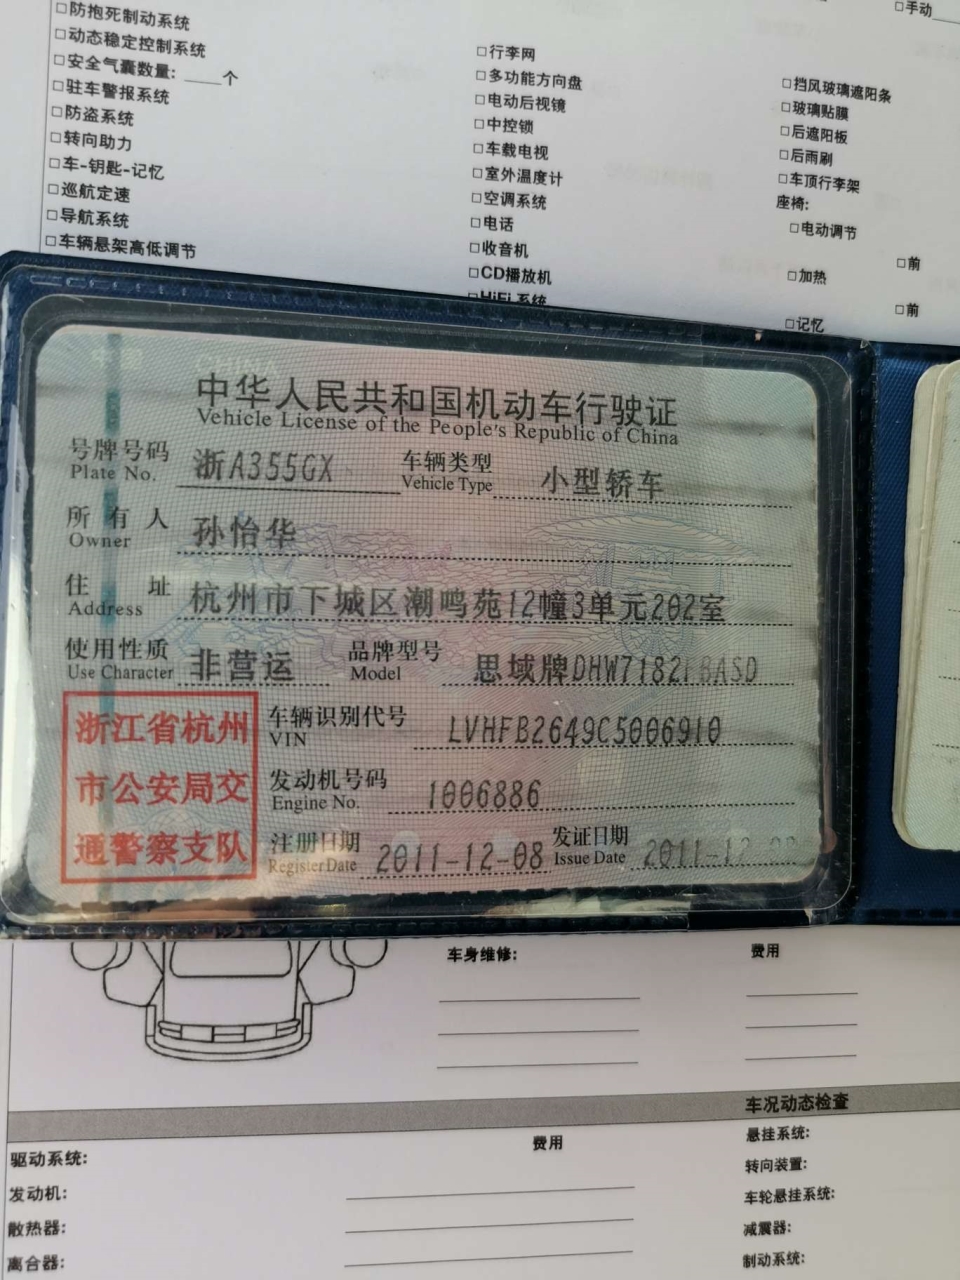 □防抱死制动系统
□动态稳定控制系统
□安全气囊数量: ____个
□驻车警报系统
□防盗系统
□转向助力
□车-钥匙-记忆
□巡航定速
□导航系统
□车辆悬架高低调节
□行李网
□多功能方向盘
□电动后视镜
□中控锁
□车载电视
□室外温度计
□空调系统
□电话
□收音机
□CD播放机
□HiFi 系统
□手动
□挡风玻璃遮阳条
□玻璃贴膜
□后遮阳板
□后雨刷
□车顶行李架
座椅:
□电动调节
□前
□加热
□前
□记忆
中华人民共和国机动车行驶证
Vehicle License of the People's Republic of China
号牌号码 浙A355GX 车辆类型 小型轿车
Plate No. Vehicle Type
所有人 孙怡华
Owner
住址 杭州市下城区潮鸣苑12幢3单元202室
Address
使用性质 非营运 品牌型号 思域牌DHW7182FBASD
Use Character Model
浙江省杭州
市公安局交
通警察支队
车辆识别代号 LVHFB2649C5006910
VIN
发动机号码 1006886
Engine No.
注册日期 2011-12-08 发证日期 2011-12
Register Date Issue Date
车身维修: 费用
车况动态检查
费用
驱动系统:
发动机:
散热器:
离合器:
悬挂系统:
转向装置:
车轮悬挂系统:
减震器:
制动系统: